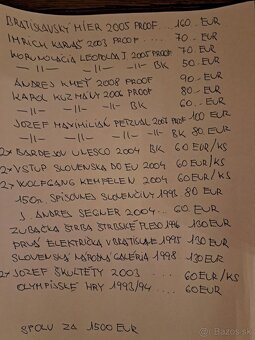 BRATISLAVSKÝ MIER 2005 PROOF ... 160.. EUR
IMRICH KARVAŠ 2003 PROOF .... 70.. EUR
KORUNOVÁCIA LEOPOLDA I 2005 PROOF 70.. EUR
-11- -11- -11- BK 50. EUR
ANDREJ KMEŤ 2008 PROOF 90.. EUR
KAROL KUZMÁNY 2006 PROOF 80.- EUR
-11- -11- -11- BK 60.. EUR
JOZEF MAXIMILIÁN PETZVAL 2007 PROOF 100 EUR
-11- -11- -11- BK 80 EUR
2x BARDEJOV UNESCO 2004 BK 60 EUR/KS
2x VSTUP SLOVENSKA DO EU 2004 60 EUR/KS
2x WOLFGANG KEMPELEN 2004 60 EUR/KS
150r. SPISOVNEJ SLOVENČINY 1993 80 EUR
J. ANDREJ SEGNER 2004.. 60. EUR
ZUBAČKA ŠTRBA ŠTRBSKÉ PLESO 1996 130 EUR
PRVÁ ELEKTRIČKA V BRATISLAVE 1995 130 EUR
SLOVENSKÁ NÁRODNÁ GALÉRIA 1998 130 EUR
2x JOZEF ŠKULTÉTY 2003 .... 60 EUR/KS
OLYMPIJSKÉ HRY 1993/94 .... 60 EUR
SPOLU ZA 1500 EUR
sbazar.sk